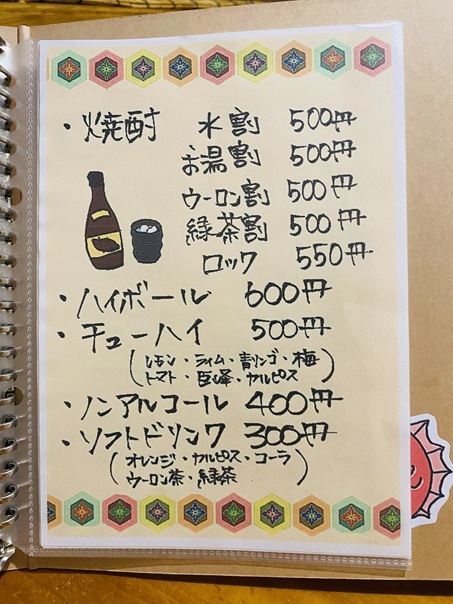 ・焼酎 水割 500円
お湯割 500円
ウーロン割 500円
緑茶割 500円
ロック 550円
・ハイボール 600円
・チューハイ 500円
(レモン・ライム・青リンゴ・梅
トマト・巨峰・カルピス)
・ノンアルコール 400円
・ソフトドリンク 300円
(オレンジ・カルピス・コーラ
ウーロン茶・緑茶)